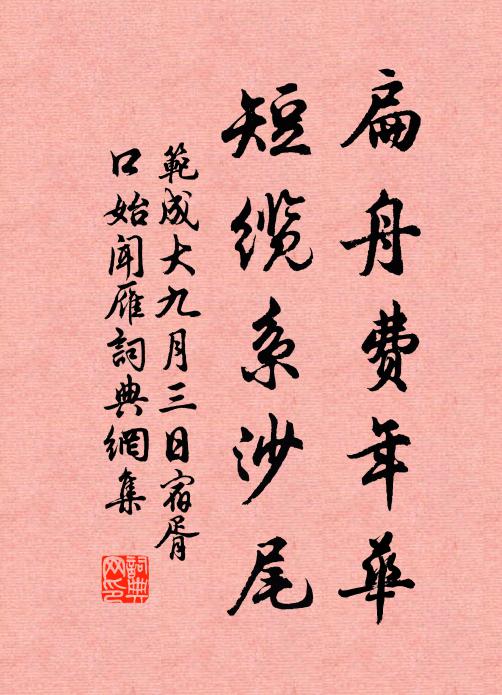 扁舟費年華
短纜系沙尾
範成大九月三日宿胥
口始闻雁詞典網集
詞典网印